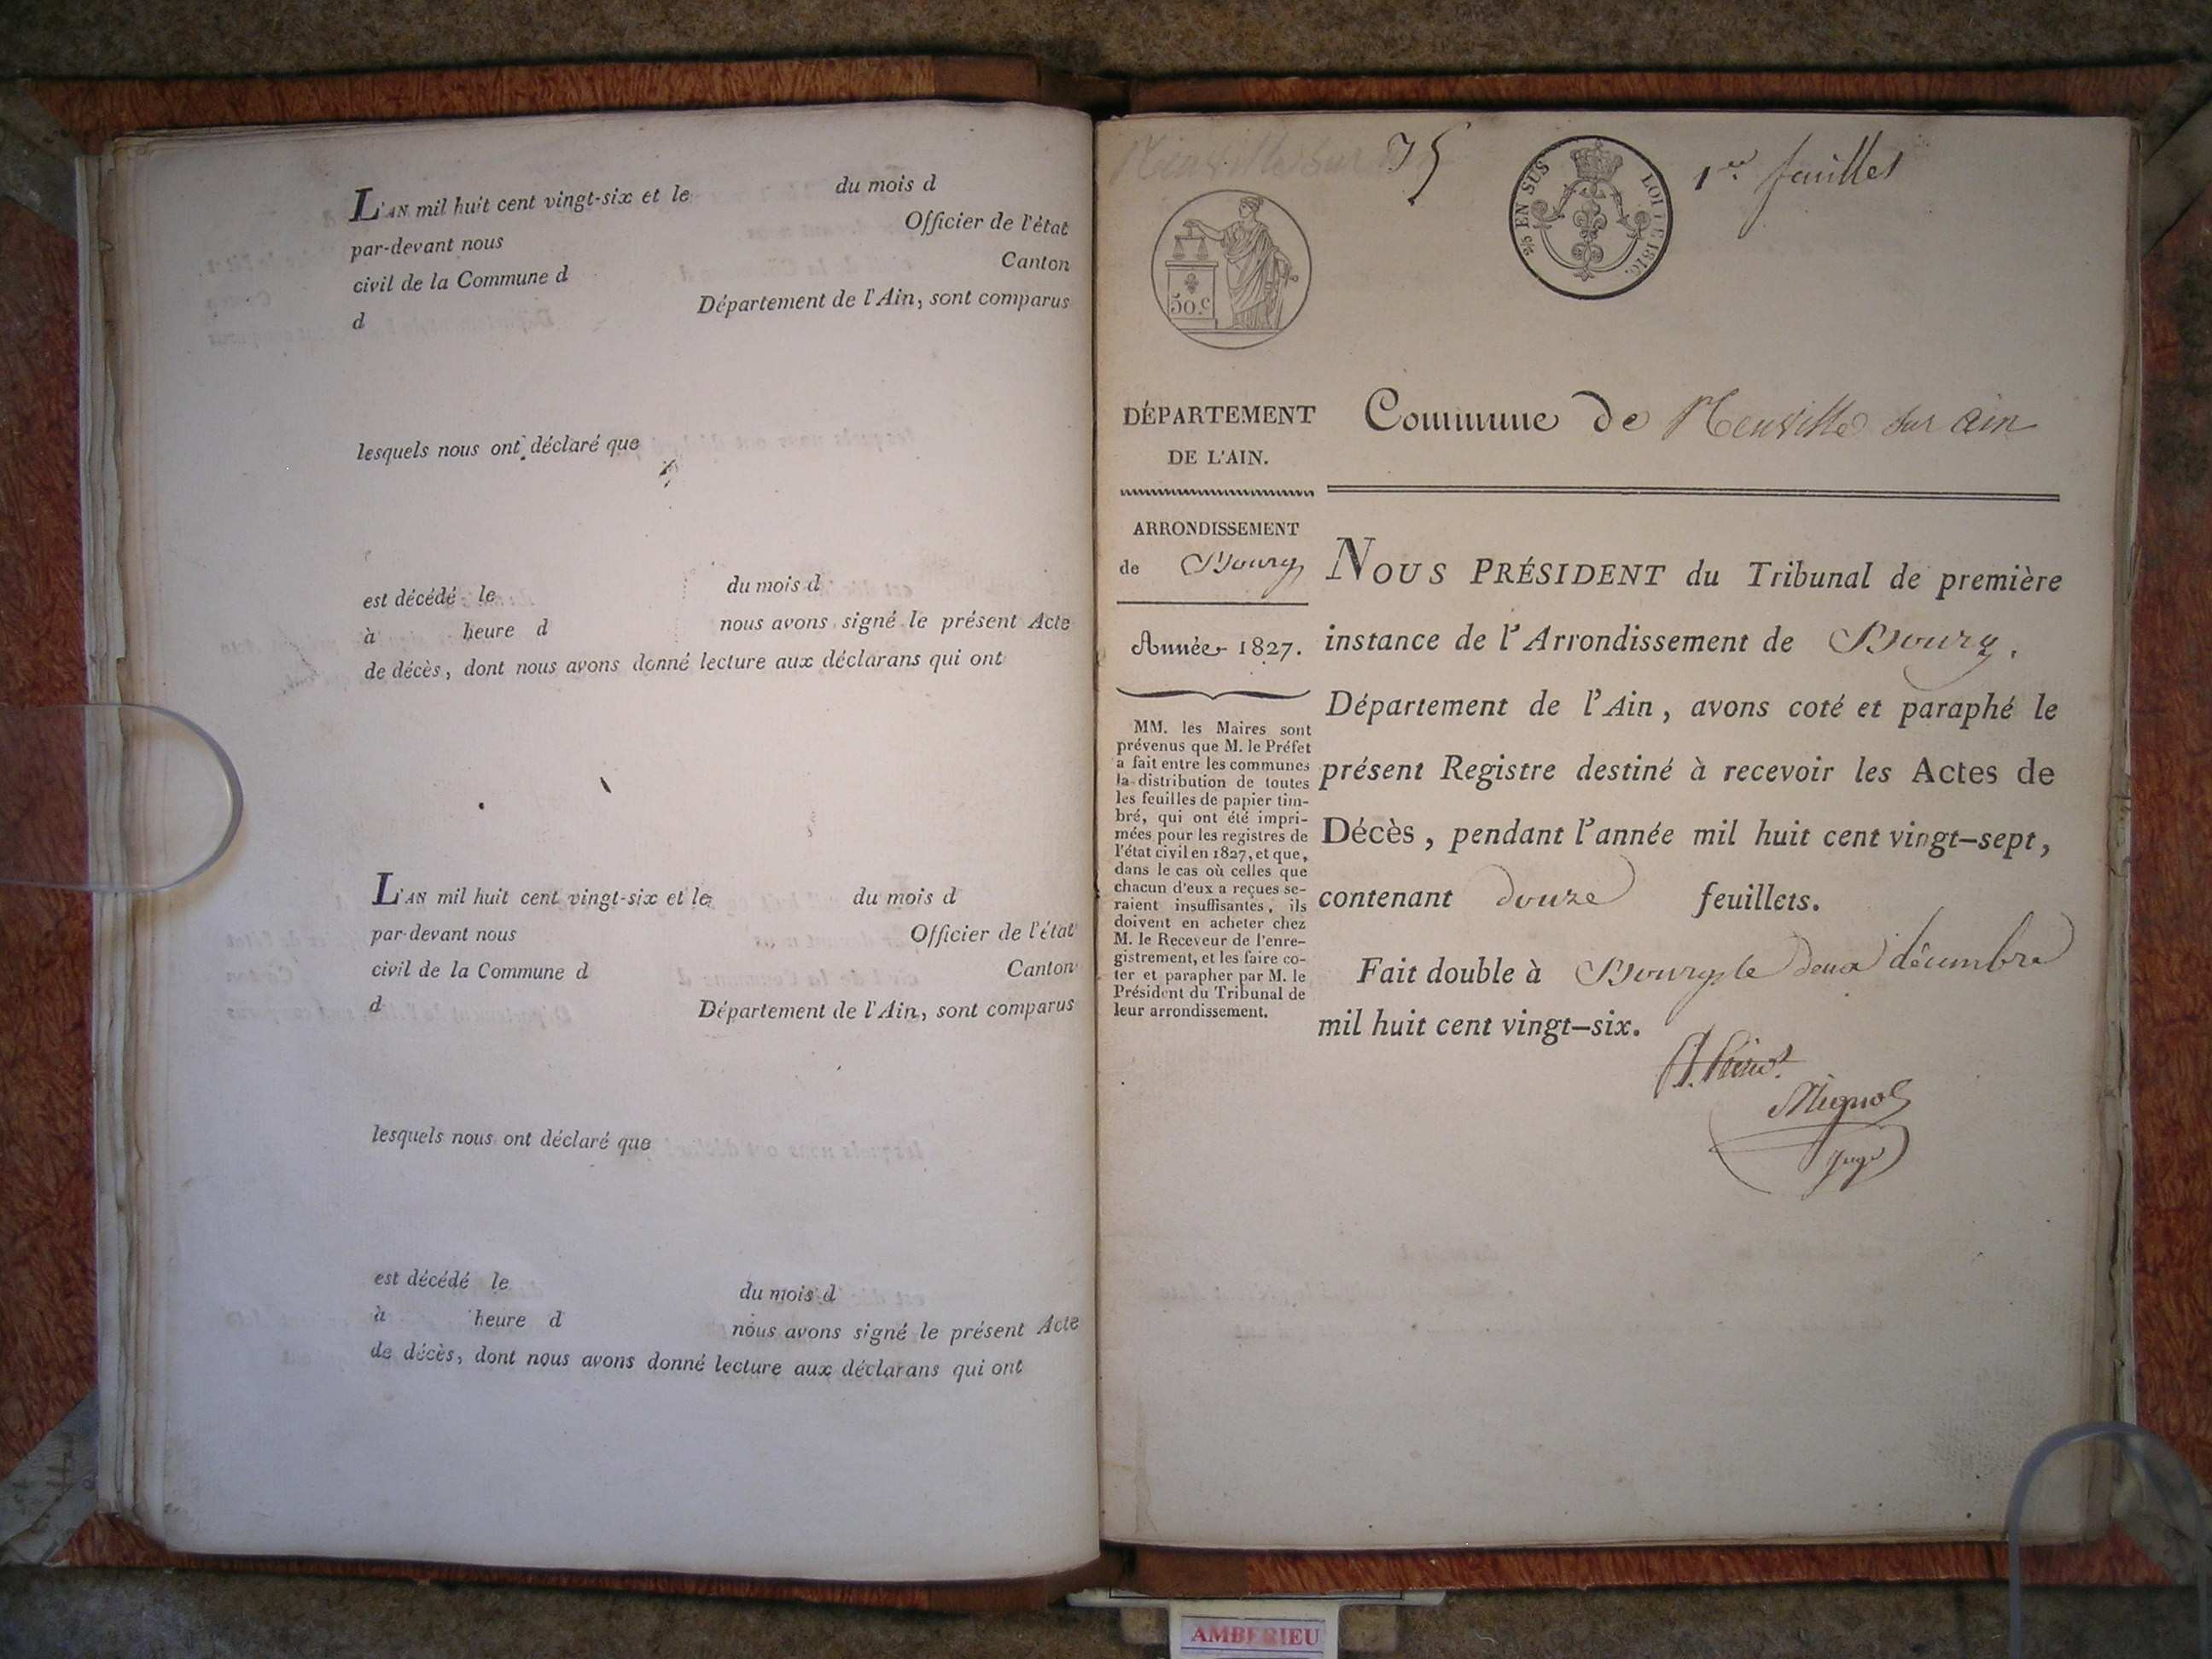 L'AN mil huit cent vingt-six et le du mois d
par-devant nous Officier de l'état
civil de la Commune d Canton
d Département de l'Ain, sont comparus
lesquels nous ont déclaré que
est décédé le du mois d
à heure d nous avons signé le présent Acte
de décès, dont nous avons donné lecture aux déclarans qui ont
L'AN mil huit cent vingt-six et le du mois d
par-devant nous Officier de l'état
civil de la Commune d Canton
d Département de l'Ain, sont comparus
lesquels nous ont déclaré que
est décédé le du mois d
à heure d nous avons signé le présent Acte
de décès, dont nous avons donné lecture aux déclarans qui ont
Neuville sur 75
EN SUS LOI DE 1816.
1er feuillet
50.c
DÉPARTEMENT
DE L'AIN.
ARRONDISSEMENT
de Bourg
Année 1827.
MM. les Maires sont
prévenus que M. le Préfet
a fait entre les communes
la distribution de toutes
les feuilles de papier tim-
bré, qui ont été impri-
mées pour les registres de
l'état civil en 1827, et que,
dans le cas où celles que
chacun d'eux a reçues se-
raient insuffisantes, ils
doivent en acheter chez
M. le Receveur de l'enre-
gistrement, et les faire co-
ter et parapher par M. le
Président du Tribunal de
leur arrondissement.
Commune de Neuville sur ain
NOUS PRÉSIDENT du Tribunal de première
instance de l'Arrondissement de Bourg,
Département de l'Ain, avons coté et paraphé le
présent Registre destiné à recevoir les Actes de
Décès, pendant l'année mil huit cent vingt-sept,
contenant douze feuillets.
Fait double à Bourg le deux décembre
mil huit cent vingt-six.
Mignot
Juge
AMBERIEU